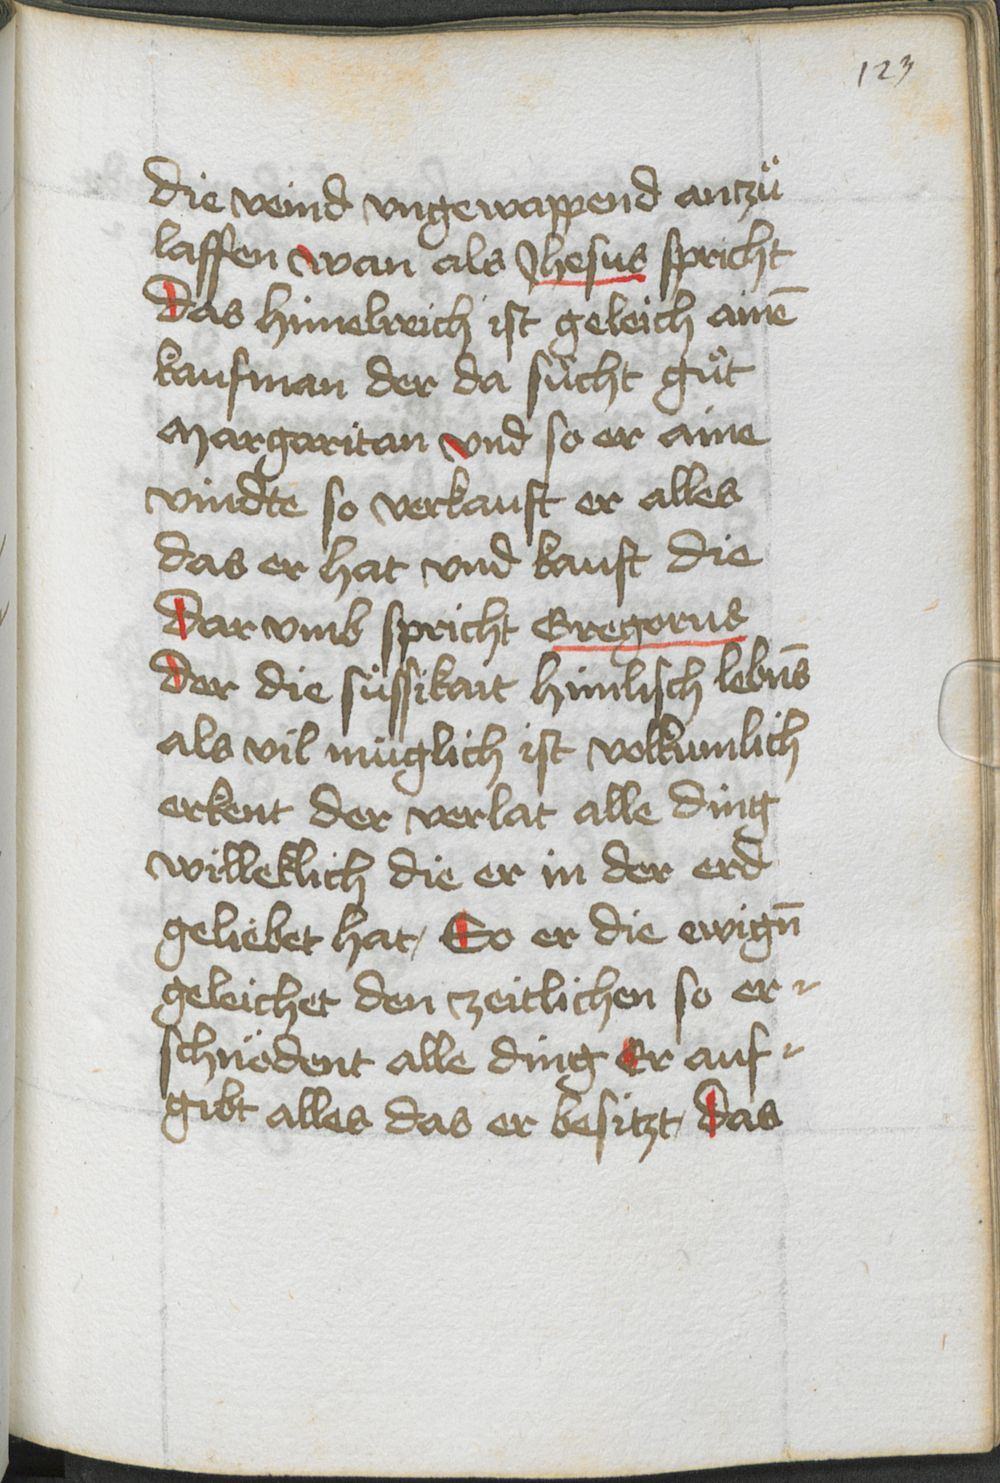 123
die veind vngewappend antzů
laffen wan als Jhesus spricht
Das himelreich ist geleich ainē
kaufman der da sücht gůt
Margaritan vnd so er aine
vindte so verkauft er alles
das er hat vnd kauft die
Dar vmb spricht Gregorus
Der die süssikait himlisch lebn̄s
als vil müglich ist volkumlich
erkent der verlat alle ding
willeklich die er in der erd
geliebet hat / So er die ewign̄
geleichet den zeitlichen so er-
schnödent alle ding Er auf-
gibt alles das er besitzt / Das